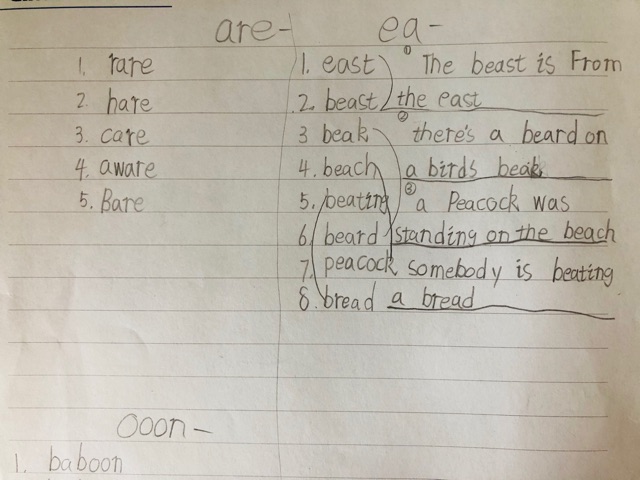 are-
1. rare
2. hare
3. care
4. aware
5. Bare
ea-
1. east
2. beast
3 beak
4. beach
5. beating
6. beard
7. peacock
8. bread
① The beast is From
the east
② there's a beard on
a birds beak
③ a Peacock was
standing on the beach
somebody is beating
a bread
ooon-
1. baboon